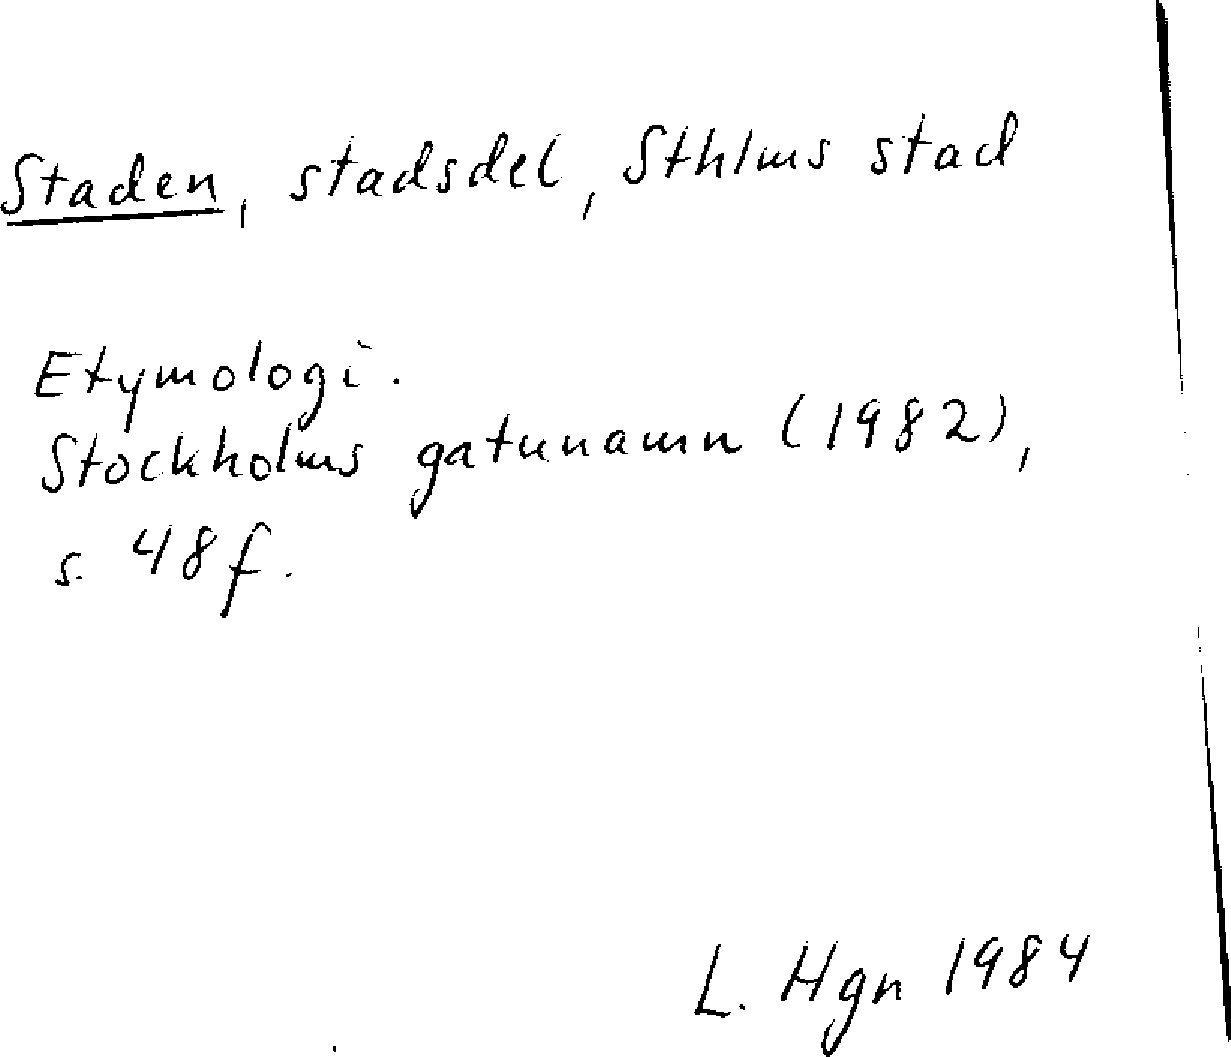 Staden, stadsdel, Sthlms stad
Etymologi.
Stockholms gatunamn (1982),
s. 48f.
L. Hgn 1984